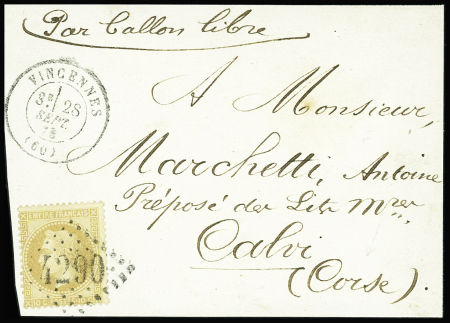 Par ballon libre
VINCENNES
3E 28
SEPT.
(60)
A Monsieur,
Marchetti, Antoine
Préposé des Lits Mres
Calvi
(Corse)
EMPIRE FRANÇAIS
4290